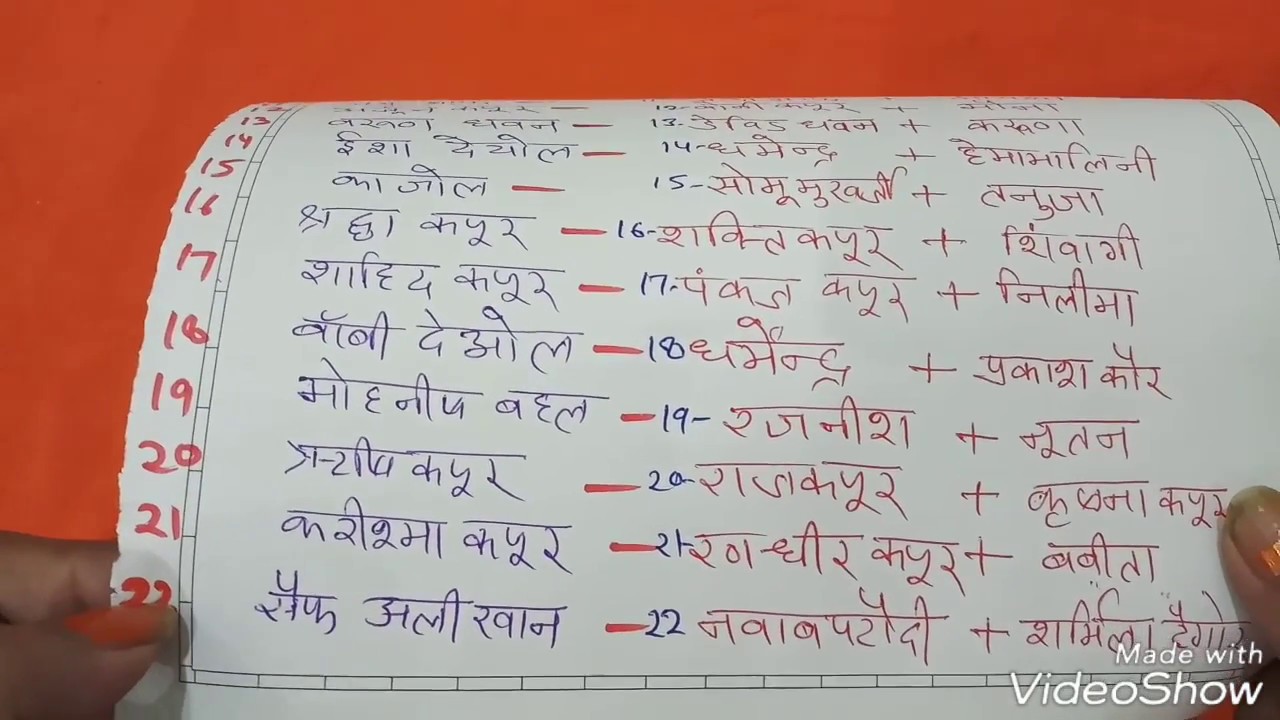 13 वरुण धवन — 13. डेविड धवन + करूणा
14 ईशा देयोल — 14- धर्मेन्द्र + हेमामालिनी
15 काजोल — 15- सोमू मुखर्जी + तनुजा
16 श्रद्धा कपूर — 16- शक्ति कपूर + शिंवागी
17 शाहिद कपूर — 17- पंकज कपूर + निलीमा
18 बॉबी देओल — 18 धर्मेन्द्र + प्रकाश कौर
19 मोहनीष बहल — 19- रजनीश + नूतन
20 कपूर — 20- राजकपूर + कृष्ना कपूर
21 करीश्मा कपूर — 21- रणधीर कपूर + बबीता
22 सैफ अली खान — 22 नवाब पटौदी + शर्मिला टैगोर
Made with
VideoShow